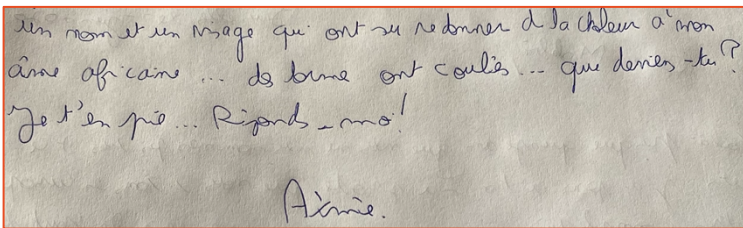 un nom et un visage qui ont su redonner d la chaleur à mon
âme africaine ... des larme ont coulés ... que deviens-tu ?
Je t'en prie ... Réponds-moi !
Aimie.